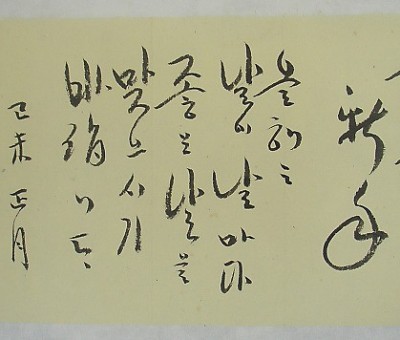 新年
올해는
날이 날마다
좋은 날을
맞으시기
바랍니다
己未 正月